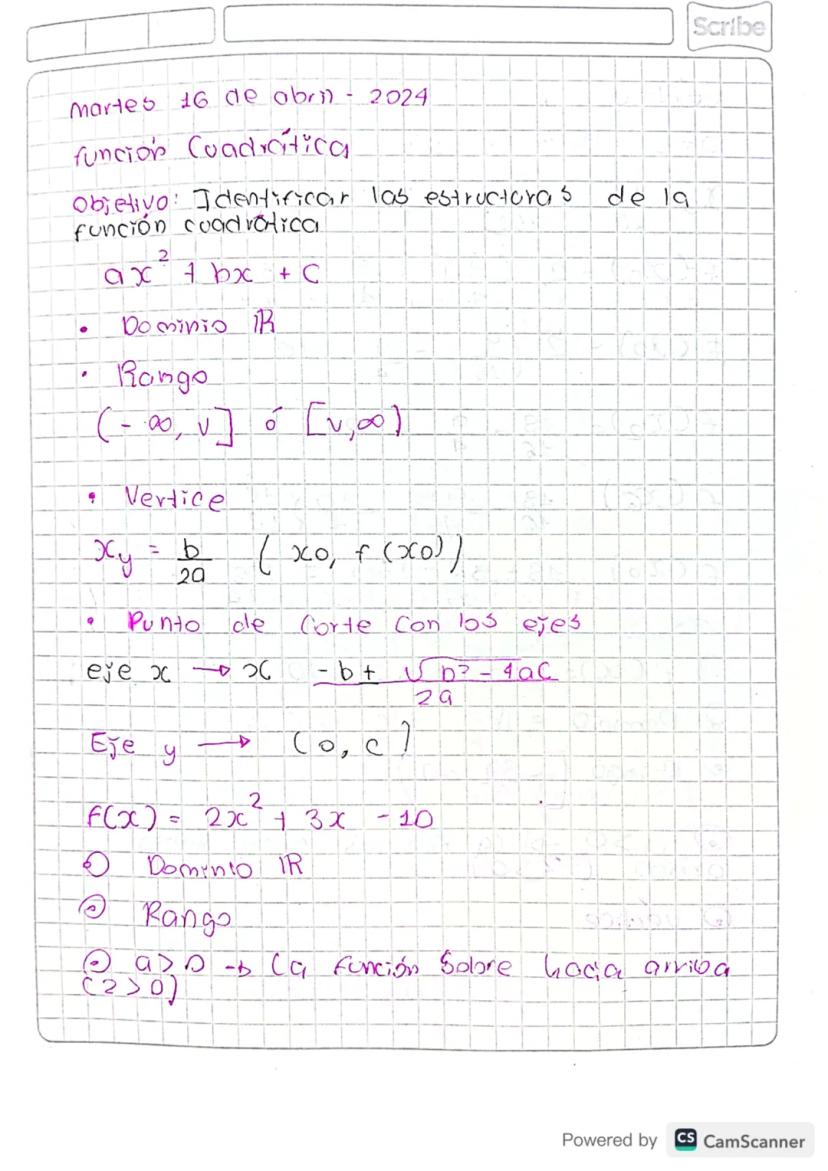 Scribe
Martes 16 de abril - 2024
función Cuadrática
Objetivo: Identificar las estructuras de la
función cuadrática
ax² + bx + c
• Dominio ℝ
• Rango
(-∞, v] ó [v, ∞)
• Vertice
xy = b/2a (x0, f(x0))
• Punto de Corte con los ejes
eje x → x -b+ √b² - 4ac / 2a
Eje y → (0, c)
f(x) = 2x² + 3x - 10
Dominio ℝ
Rango
a>0 → La función Sobre hacia arriba
(2>0)
Powered by CS CamScanner